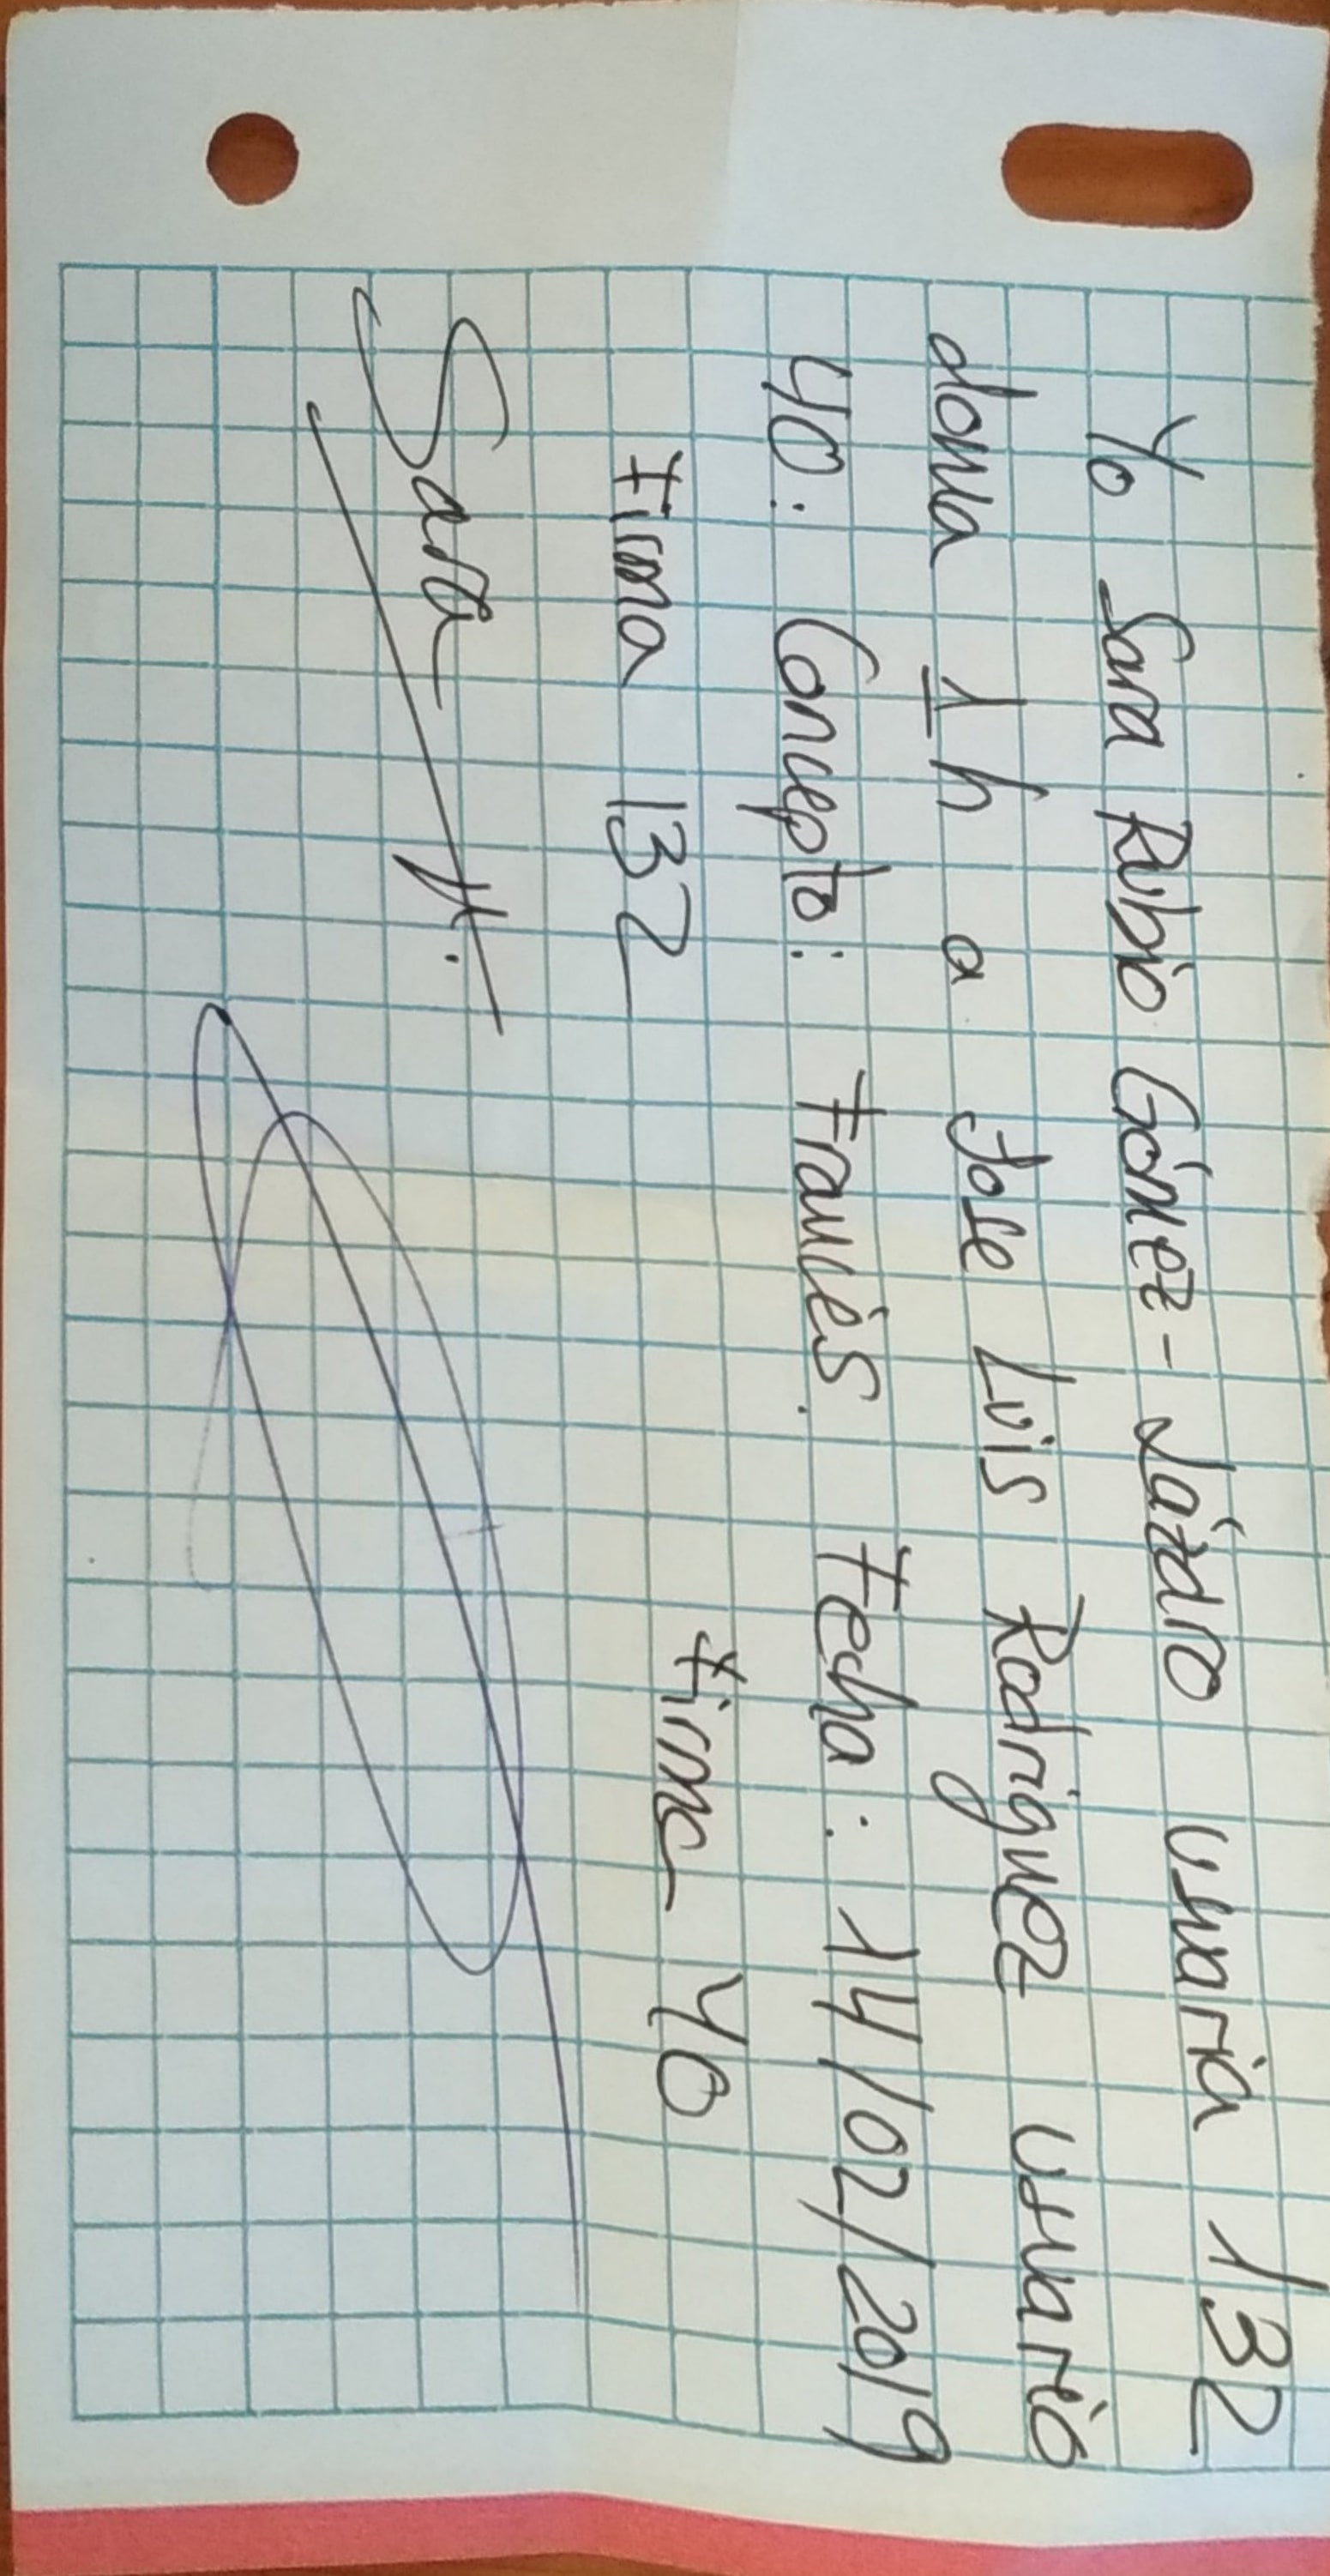 Yo Sara Rubio Gómez-Lázaro usuaria 132
dona 1h a Jose Luis Rodriguez usuario
40. Concepto: Francés. Fecha: 14/02/2019
Firma 132 Firma 40
Sara